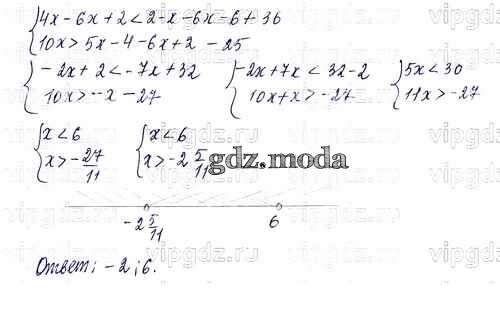 {4x - 6x + 2 < 2 - x - 6x - 6 + 36
10x > 5x - 4 - 6x + 2 - 25
{-2x + 2 < -7x + 32 {-2x + 7x < 32 - 2 {5x < 30
10x > -x - 27 10x + x > -27 11x > -27
{x < 6 {x < 6
x > -27/11 x > -2 5/11
gdz.moda
-2 5/11 6
Ответ: -2; 6.
vipgdz.ru